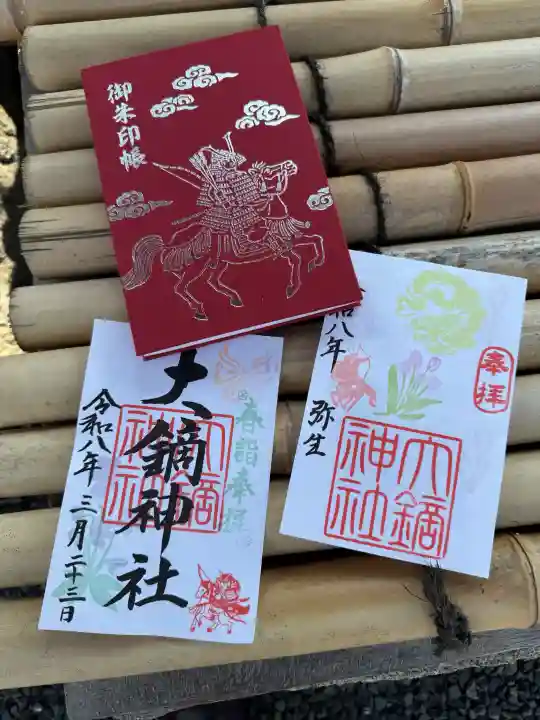 御朱印帳
大鏑神社
令和八年三月二十三日
春詣奉拝
大鏑神社
令和八年
弥生
奉拝
大鏑神社